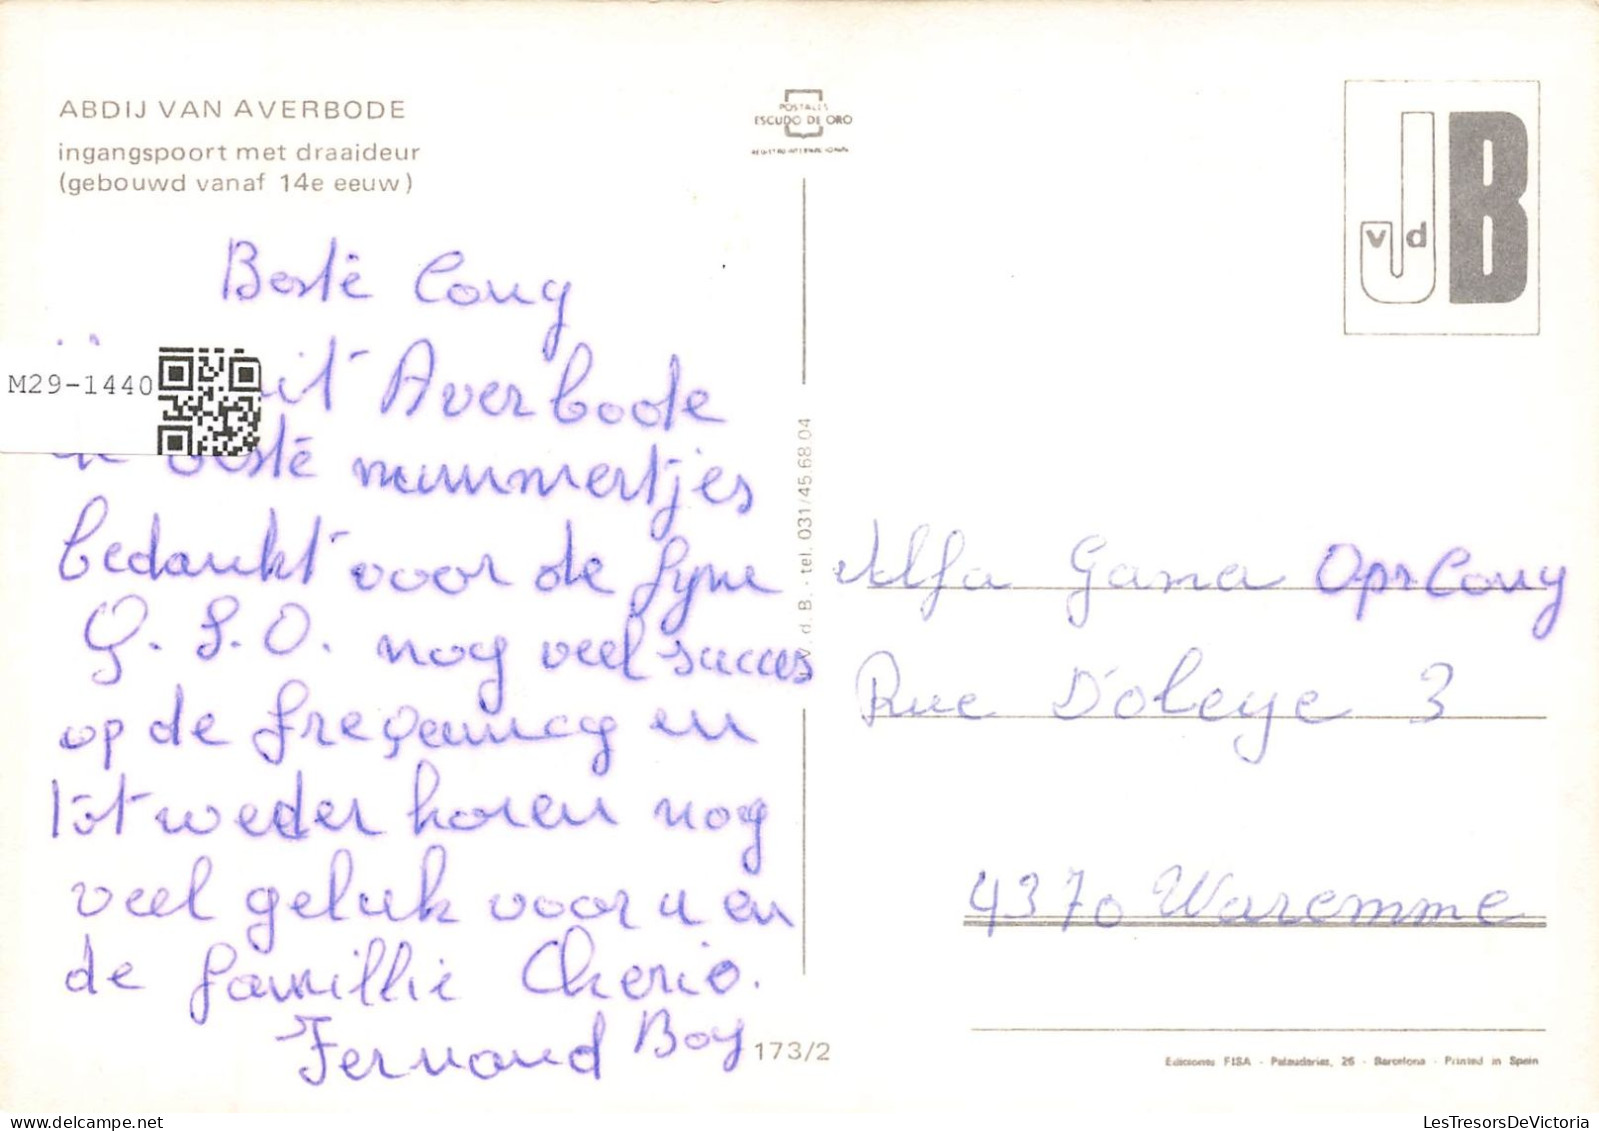 ABDIJ VAN AVERBODE
ingangspoort met draaideur
(gebouwd vanaf 14e eeuw)
POSTALES
ESCUDO DE ORO
v d
JB
Besté Couy
uit Averbode
M29-1440
besté nummertjes
bedankt voor de fyne
Q.S.O. nog veel succes
op de freçauncy en
tot weder horen nog
veel geluk voor u en
de famillie Cherio.
Fernand Boy
173/2
v. d. B. - tel. 031/45.68.04
Alfa Gama Opr Couy
Rue D'oleye 3
4370 Waremme
Ediciones FISA - Palaudarias, 26 - Barcelona - Printed in Spain
LesTresorsDeVictoria